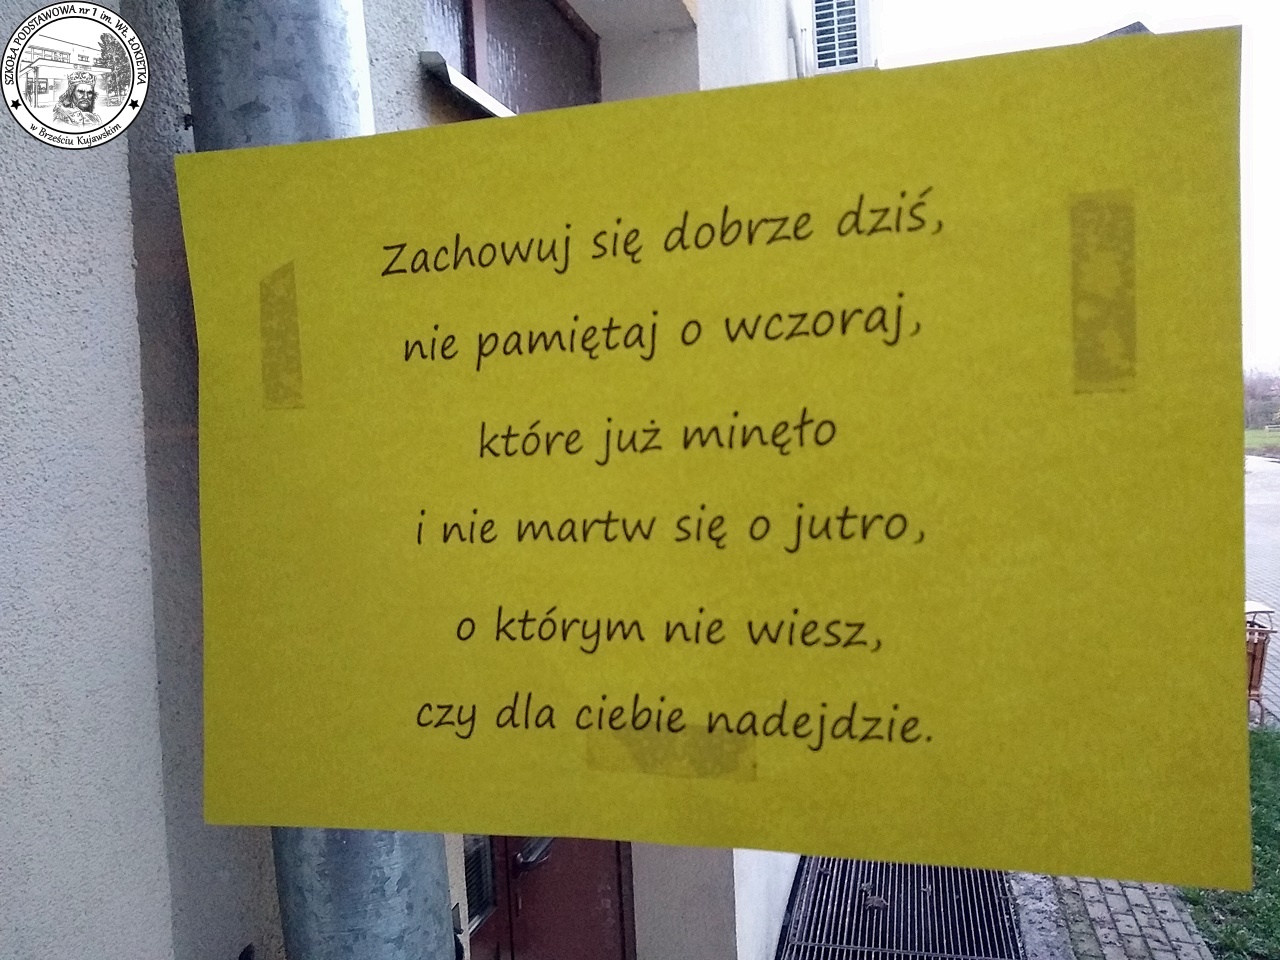 SZKOŁA PODSTAWOWA nr 1 im. WŁ. ŁOKIETKA
w Brześciu Kujawskim
Zachowuj się dobrze dziś,
nie pamiętaj o wczoraj,
które już minęło
i nie martw się o jutro,
o którym nie wiesz,
czy dla ciebie nadejdzie.